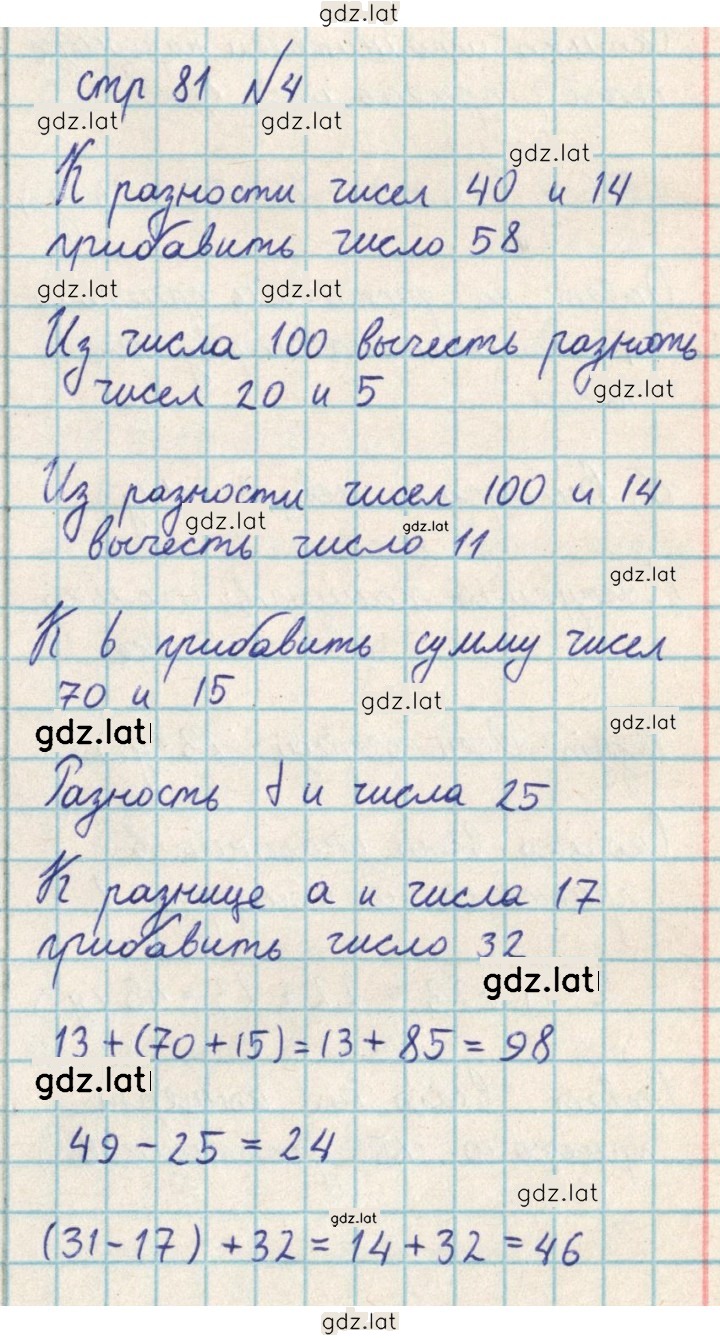 gdz.lat
стр 81 №4
gdz.lat gdz.lat
gdz.lat
К разности чисел 40 и 14
прибавить число 58
gdz.lat gdz.lat
Из числа 100 вычесть разность
gdz.lat
чисел 20 и 5
Из разности чисел 100 и 14
gdz.lat gdz.lat
вычесть число 11
gdz.lat
К b прибавить сумму чисел
70 и 15
gdz.lat
gdz.lat
gdz.lat
Разность d и числа 25
К разнице a и числа 17
прибавить число 32
gdz.lat
13 + (70 + 15) = 13 + 85 = 98
gdz.lat
49 - 25 = 24
gdz.lat
gdz.lat
(31 - 17) + 32 = 14 + 32 = 46
gdz.lat